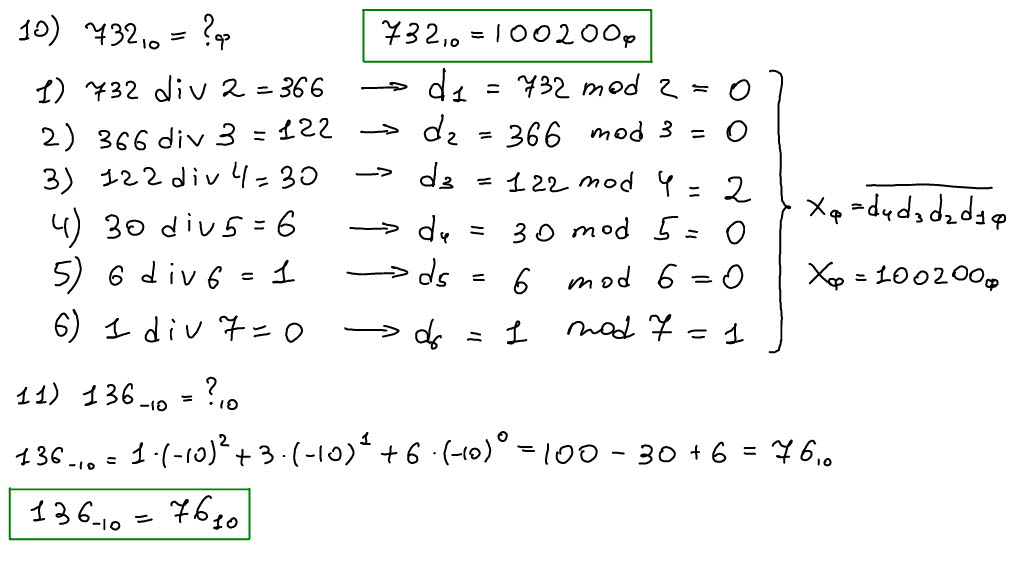 10) 732₁₀ = ?ф
732₁₀ = 100200ф
1) 732 div 2 = 366 → d₁ = 732 mod 2 = 0
2) 366 div 3 = 122 → d₂ = 366 mod 3 = 0
3) 122 div 4 = 30 → d₃ = 122 mod 4 = 2
4) 30 div 5 = 6 → d₄ = 30 mod 5 = 0
5) 6 div 6 = 1 → d₅ = 6 mod 6 = 0
6) 1 div 7 = 0 → d₆ = 1 mod 7 = 1
Xф = d₄d₃d₂d₁ф
Xф = 100200ф
11) 136₋₁₀ = ?₁₀
136₋₁₀ = 1·(-10)² + 3·(-10)¹ + 6·(-10)⁰ = 100 - 30 + 6 = 76₁₀
136₋₁₀ = 76₁₀